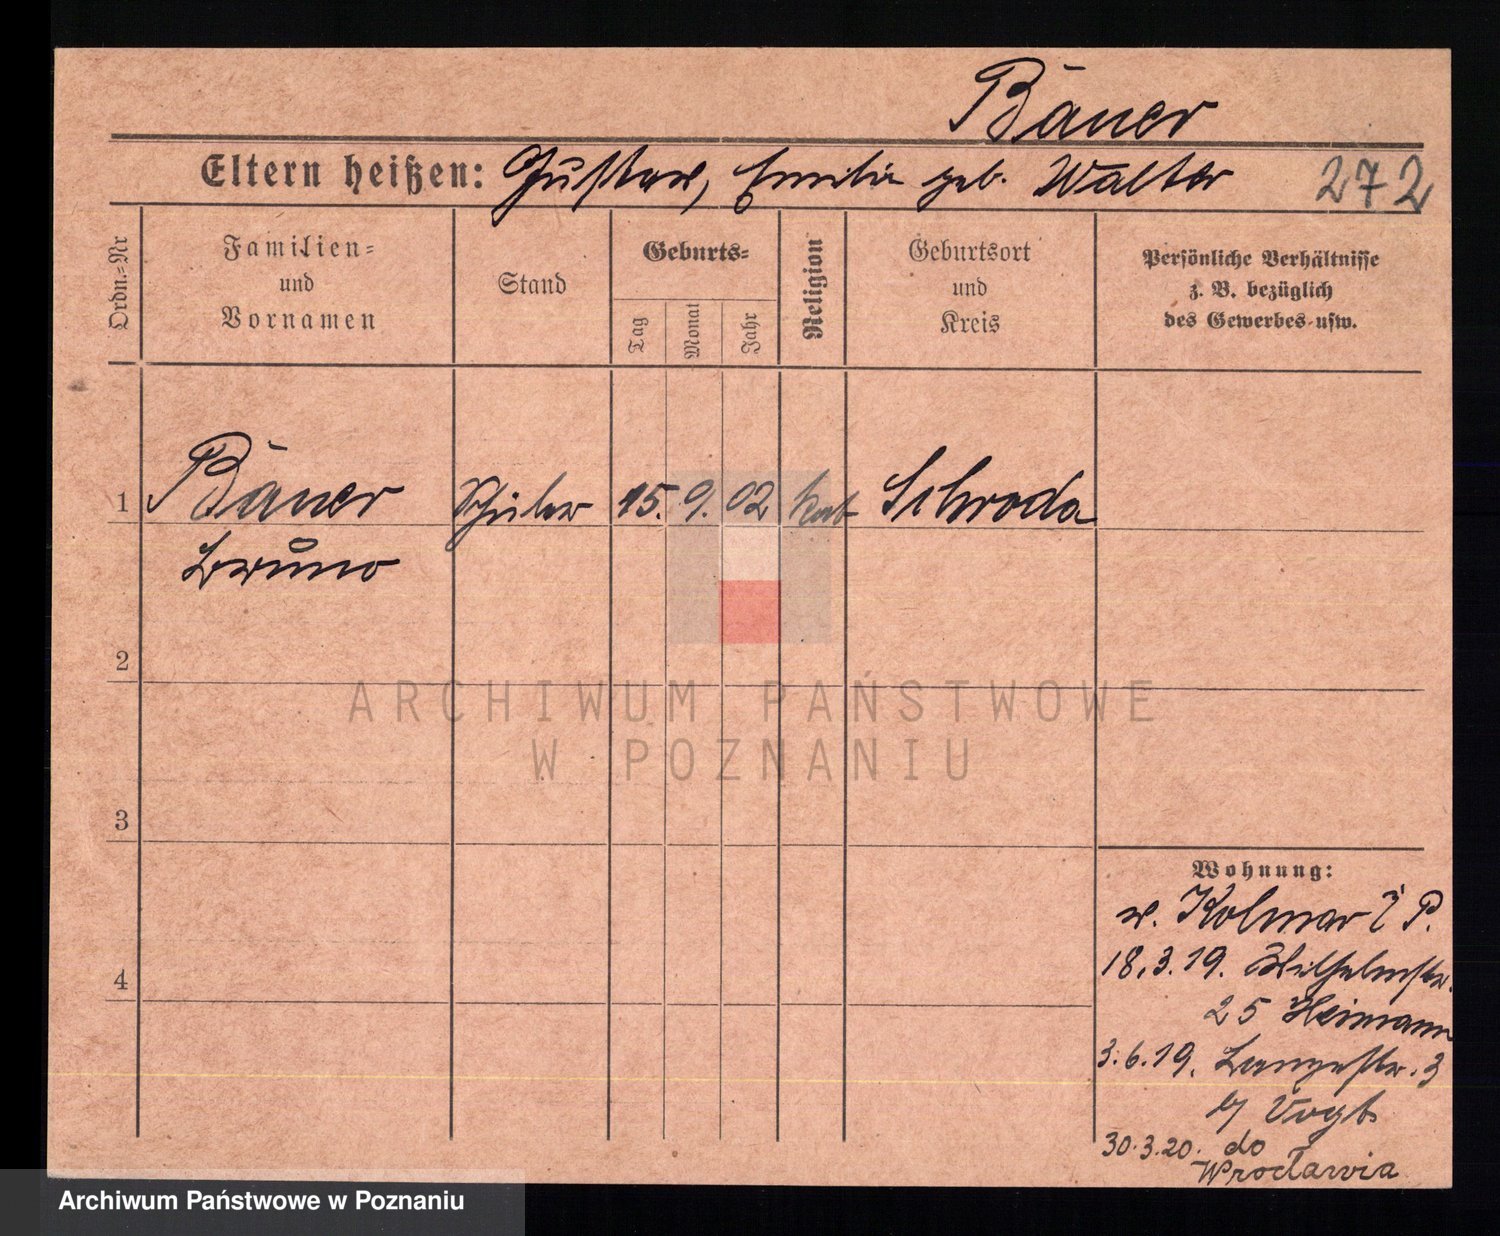 Bauer
Eltern heißen: Gustav, Emilie geb. Walter 272
Ordn.=Nr
Familien=
und
Vornamen
Stand
Geburts=
Tag
Monat
Jahr
Religion
Geburtsort
und
Kreis
Persönliche Verhältnisse
z. B. bezüglich
des Gewerbes usw.
1 Bauer Schüler 15. 9. 02 kat Schroda
Bruno
2
ARCHIWUM PAŃSTWOWE
W POZNANIU
3
4
Wohnung:
v. Kolmar i P.
18.3.19. Wilhelmstr.
25 Heimann
3.6.19. Langestr. 3
b/ Vogt
30.3.20. do
Wrocławia
Archiwum Państwowe w Poznaniu